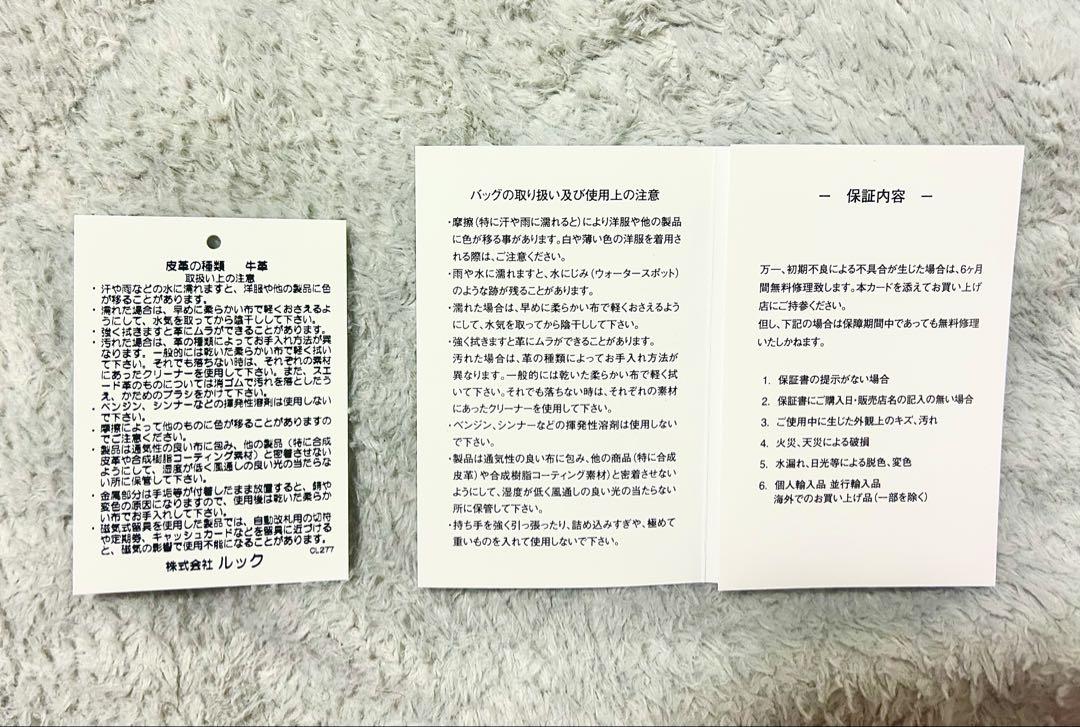 皮革の種類　牛革
取扱い上の注意
・汗や雨などの水に濡れますと、洋服や他の製品に色
が移ることがあります。
・濡れた場合は、早めに柔らかい布で軽くおさえるよ
うにして、水気を取ってから陰干しして下さい。
・強く拭きますと革にムラができることがあります。
・汚れた場合は、革の種類によってお手入れ方法が異
なります。一般的には乾いた柔らかい布で軽く拭い
て下さい。それでも落ちない時は、それぞれの素材
にあったクリーナーを使用して下さい。また、スエ
ード革のものについては消ゴムで汚れを落としたう
え、かためのブラシをかけて下さい。
・ベンジン、シンナーなどの揮発性溶剤は使用しない
で下さい。
・摩擦によって他のものに色が移ることがありますの
でご注意ください。
・製品は通気性の良い布に包み、他の製品（特に合成
皮革や合成樹脂コーティング素材）と密着させない
ようにして、湿度が低く風通しの良い光の当たらな
い所に保管して下さい。
・金属部分は手垢等が付着したまま放置すると、錆や
変色の原因になりますので、使用後は乾いた柔らか
い布でお手入れして下さい。
・磁気式留具を使用した製品では、自動改札用の切符
や定期券、キャッシュカードなどを留具に近づける
と、磁気の影響で使用不能になることがあります。
CL277
株式会社 ルック
バッグの取り扱い及び使用上の注意
・摩擦（特に汗や雨に濡れると）により洋服や他の製品
に色が移る事があります。白や薄い色の洋服を着用さ
れる際は、ご注意ください。
・雨や水に濡れますと、水にじみ（ウォータースポット）
のような跡が残ることがあります。
・濡れた場合は、早めに柔らかい布で軽くおさえるよう
にして、水気を取ってから陰干しして下さい。
・強く拭きますと革にムラができることがあります。
汚れた場合は、革の種類によってお手入れ方法が
異なります。一般的には乾いた柔らかい布で軽く拭
いて下さい。それでも落ちない時は、それぞれの素材
にあったクリーナーを使用して下さい。
・ベンジン、シンナーなどの揮発性溶剤は使用しない
で下さい。
・製品は通気性の良い布に包み、他の商品（特に合成
皮革）や合成樹脂コーティング素材）と密着させない
ようにして、湿度が低く風通しの良い光の当たらない
所に保管して下さい。
・持ち手を強く引っ張ったり、詰め込みすぎや、極めて
重いものを入れて使用しないで下さい。
－ 保証内容 －
万一、初期不良による不具合が生じた場合は、6ヶ月
間無料修理致します。本カードを添えてお買い上げ
店にご持参ください。
但し、下記の場合は保障期間中であっても無料修理
いたしかねます。
1. 保証書の提示がない場合
2. 保証書にご購入日・販売店名の記入の無い場合
3. ご使用中に生じた外観上のキズ、汚れ
4. 火災、天災による破損
5. 水漏れ、日光等による脱色、変色
6. 個人輸入品 並行輸入品
海外でのお買い上げ品（一部を除く）